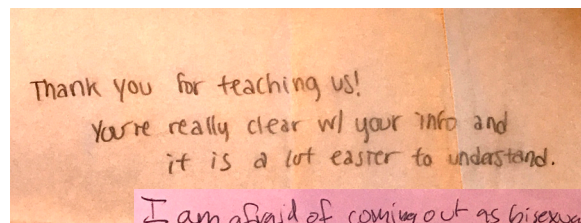 Thank you for teaching us!
You're really clear w/ your info and
it is a lot easier to understand.
I am afraid of coming out as bisexua